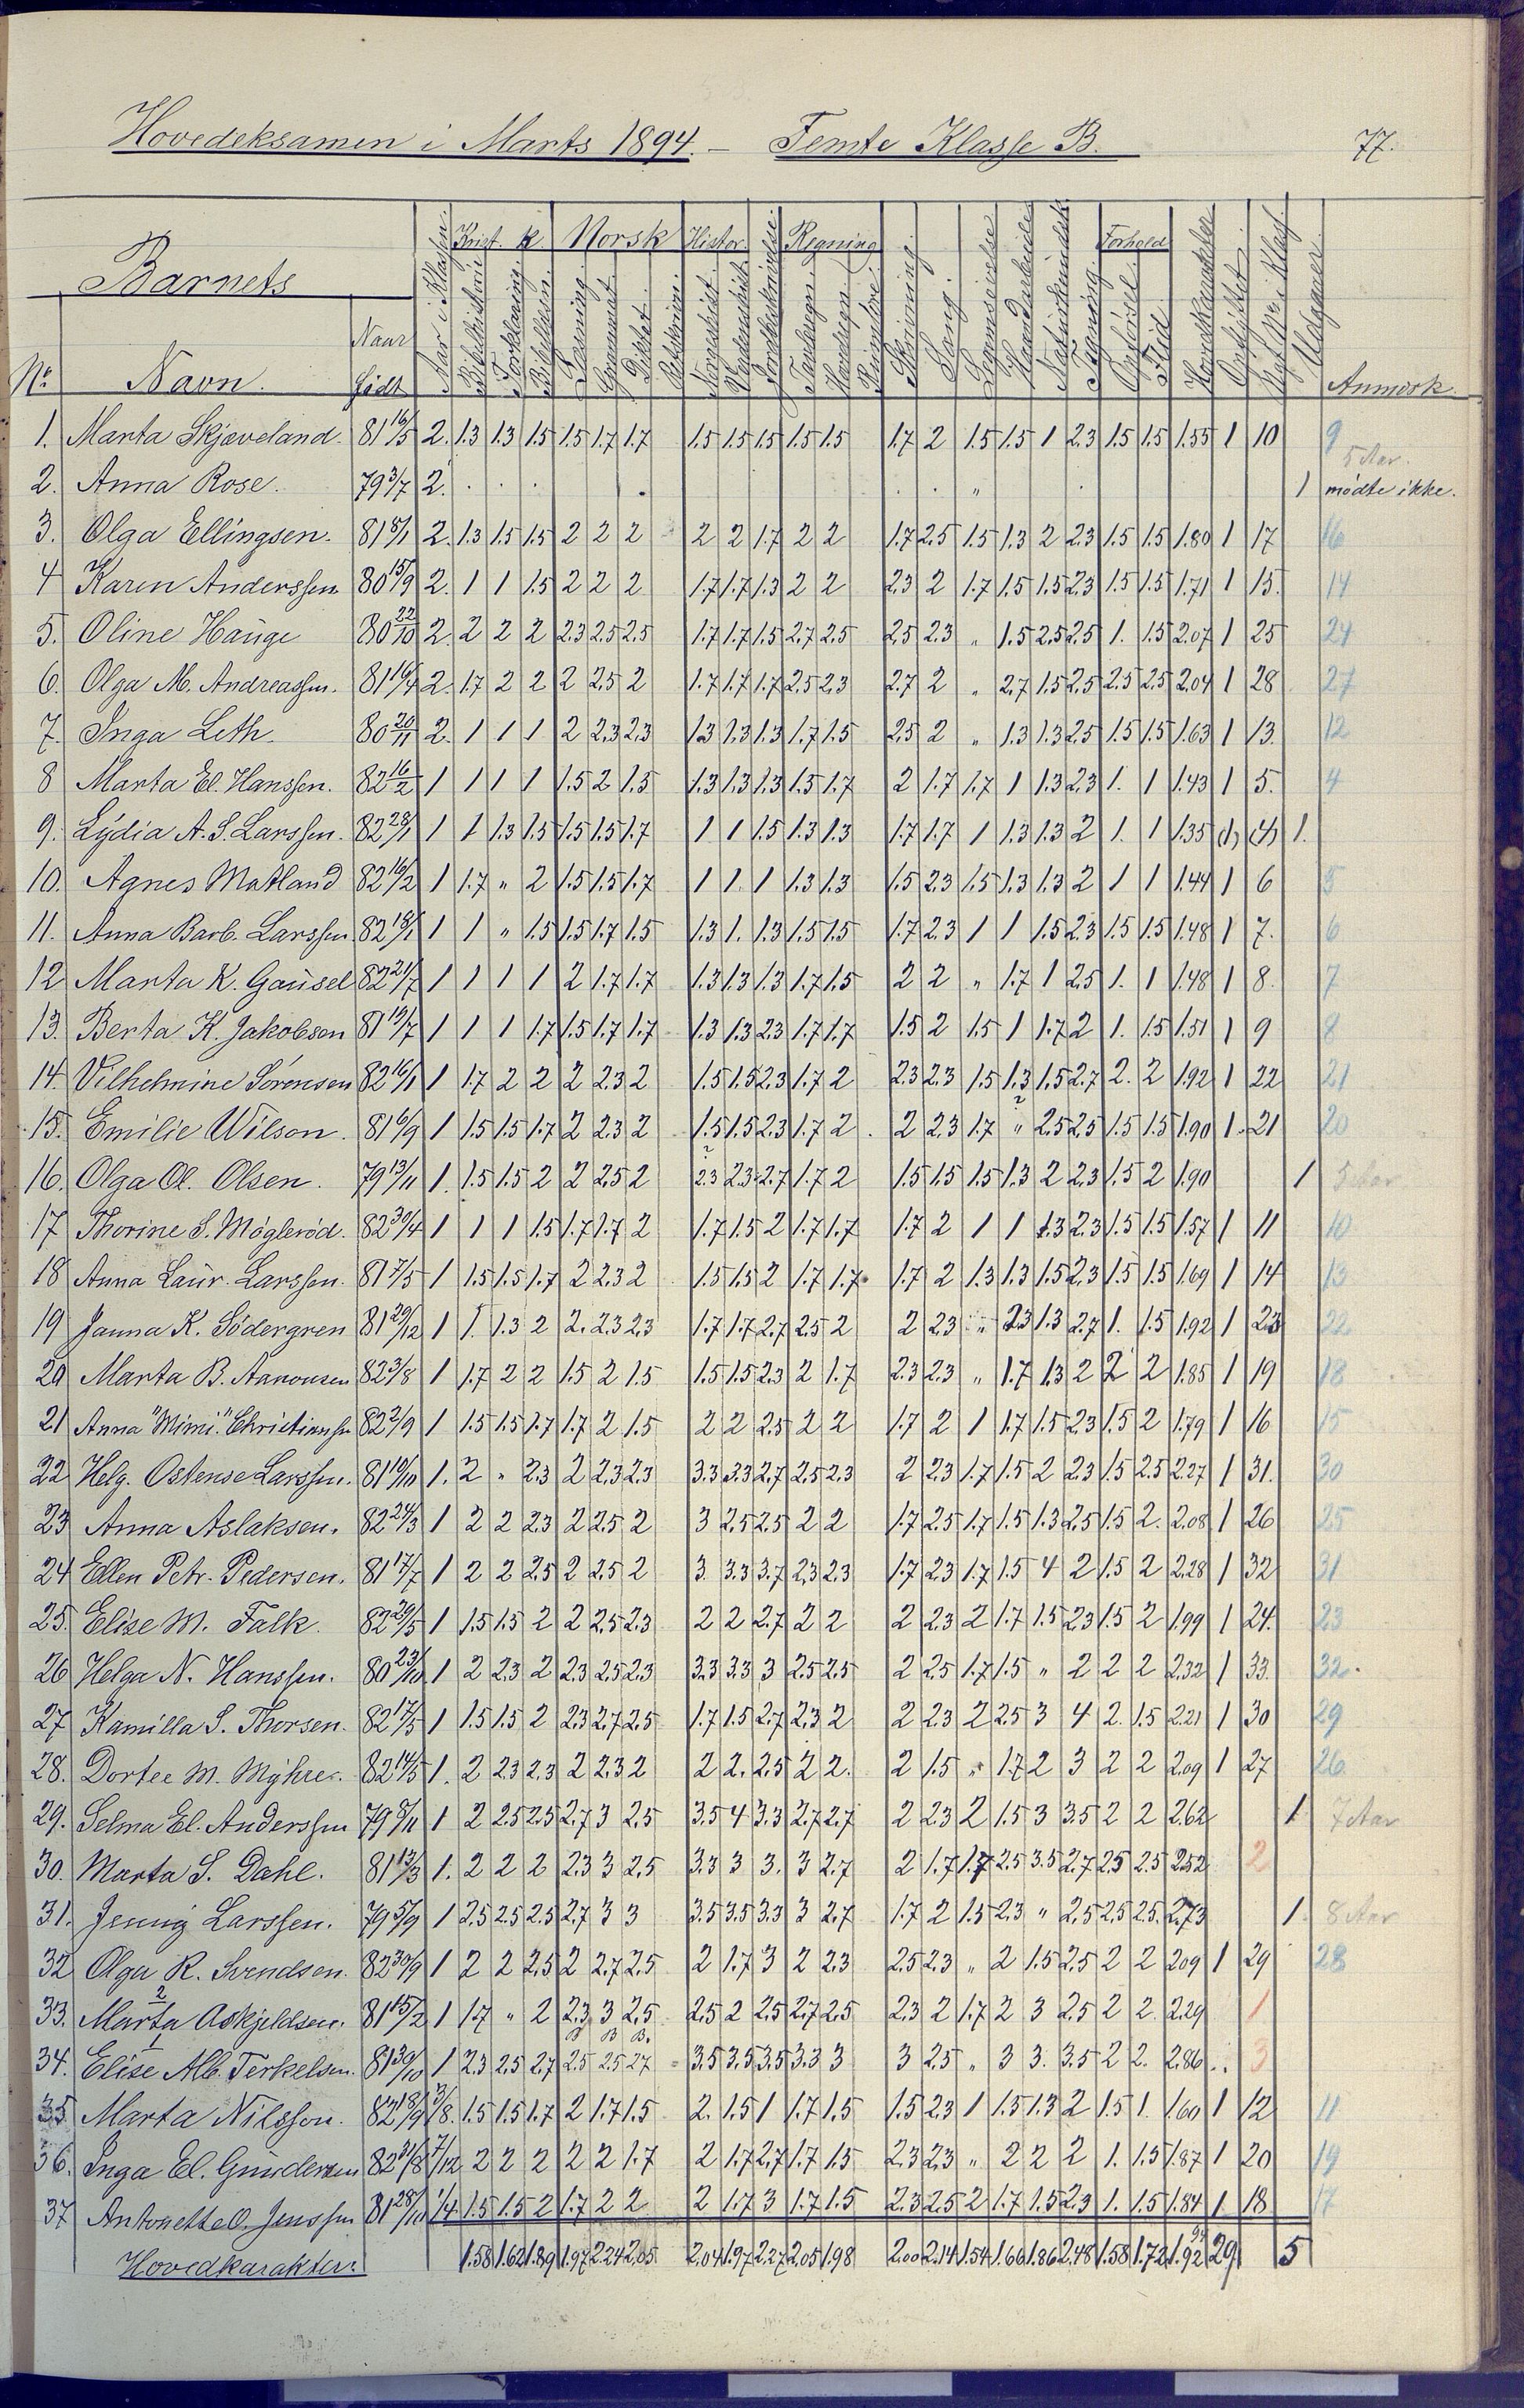 Hovedeksamen i Marts 1894. – Femte Klasse B. 77.
Barnets Krist. k Norsk Histor. Regning Forhold
No. Navn. Naar født Aar i Klassen. Bibelhistorie Forklaring. Læsning. Grammat. Diktat. Norgeshist. Verdenshist. Jordbeskrivelse. Tavleregn. Hovedregn. Skrivning. Sang. Haandarbeide Tegning. Opførsel. Flid. Hovedkarakter. Opflyttet. Udgaaer. Anmærk.
1. Marta Skjæveland. 81 16/5 2. 1.3 1.3 1.5 1.5 1.7 1.7 1.5 1.5 1.5 1.5 1.5 1.7 2 1.5 1.5 1 2.3 1.5 1.5 1.55 1 10 9
2. Anna Rose. 79 3/7 2. " 1 5 Aar. mødte ikke.
3. Olga Ellingsen. 81 8/1 2. 1.3 1.5 1.5 2 2 2 2 2 1.7 2 2 1.7 2.5 1.5 1.3 2 2.3 1.5 1.5 1.80 1 17 16
4 Karen Anderssen. 80 15/9 2. 1 1 1.5 2 2 2 1.7 1.7 1.3 2 2 2.3 2 1.7 1.5 1.5 2.3 1.5 1.5 1.71 1 15. 14
5. Oline Hauge 80 22/10 2. 2 2 2 2.3 2.5 2.5 1.7 1.7 1.5 2.7 2.5 2.5 2.3 " 1.5 2.5 2.5 1. 1.5 2.07 1 25 24
6. Olga M. Andreassen. 81 16/4 2. 1.7 2 2 2 2.5 2 1.7 1.7 1.7 2.5 2.3 2.7 2 " 2.7 1.5 2.5 2.5 2.5 2.04 1 28 27
7. Inga Leth. 80 20/11 2. 1 1 1 2 2.3 2.3 1.3 1.3 1.3 1.7 1.5 2.5 2 " 1.3 1.3 2.5 1.5 1.5 1.63 1 13. 12
8 Marta El. Hanssen. 82 16/2 1 1 1 1 1.5 2 1.5 1.3 1.3 1.3 1.5 1.7 2 1.7 1.7 1 1.3 2.3 1. 1 1.43 1 5. 4
9. Lydia A. S. Larssen. 82 28/1 1 1 1.3 1.5 1.5 1.5 1.7 1 1 1.5 1.3 1.3 1.7 1.7 1 1.3 1.3 2 1. 1 1.35 (1) (4) 1.
10. Agnes Matland 82 16/2 1 1.7 " 2 1.5 1.5 1.7 1 1. 1 1.3 1.3 1.5 2.3 1.5 1.3 1.3 2 1 1 1.44 1 6 5
11. Anna Barb. Larssen 82 18/1 1 1 " 1.5 1.5 1.7 1.5 1.3 1. 1.3 1.5 1.5 1.7 2.3 1 1 1.5 2.3 1.5 1.5 1.48 1 7. 6
12 Marta K. Gausel 82 21/7 1 1 1 1 2 1.7 1.7 1.3 1.3 1.3 1.7 1.5 2 2 " 1.7 1 2.5 1. 1 1.48 1 8. 7
13. Berta K. Jakobsen 81 19/7 1 1 1 1.7 1.5 1.7 1.7 1.3 1.3 2.3 1.7 1.7 1.5 2 1.5 1 1.7 2 1. 1.5 1.51 1 9 8
14. Vilhelmine Sørensen 82 16/1 1 1.7 2 2 2 2.3 2 1.5 1.5 2.3 1.7 2 2.3 2.3 1.5 1.3 1.5 2.7 2. 2 1.92 1 22 21
15. Emilie Wilson. 81 6/9 1 1.5 1.5 1.7 2 2.3 2 1.5 1.5 2.3 1.7 2. 2 2.3 1.7 " 2.5 2.5 1.5 1.5 1.90 1. 21 20
16. Olga Ol. Olsen. 79 13/11 1. 1.5 1.5 2 2 2.5 2 2.3 2.3 2.7 1.7 2 1.5 1.5 1.5 1.3 2 2.3 1.5 2 1.90 1 5 Aar
17 Thorine S. Møglerød. 82 30/4 1 1 1 1.5 1.7 1.7 2 1.7 1.5 2 1.7 1.7 1.7 2 1 1 1.3 2.3 1.5 1.5 1.57 1 11 10
18 Anna Laur. Larssen. 81 7/5 1 1.5 1.5 1.7 2 2.3 2 1.5 1.5 2 1.7 1.7 1.7 2 1.3 1.3 1.5 2.3 1.5 1.5 1.69 1 14 13
19 Janna K. Södergren 81 29/12 1 1. 1.3 2 2. 2.3 2.3 1.7 1.7 2.7 2.5 2 2 2.3 " 2.3 1.3 2.7 1. 1.5 1.92 1 23 22
20 Marta B. Aanonsen 82 3/8 1 1.7 2 2 1.5 2 1.5 1.5 1.5 2.3 2 1.7 2.3 2.3 " 1.7 1.3 2 2 2 1.85 1 19 18
21 Anna "Mimi" Christianssen 82 2/9 1 1.5 1.5 1.7 1.7 2 1.5 2 2 2.5 2 2 1.7 2 1 1.7 1.5 2.3 1.5 2 1.79 1 16 15
22 Helg. Ostense Larssen. 81 19/10 1. 2 " 2.3 2 2.3 2.3 3.3 3.3 2.7 2.5 2.3 2 2.3 1.7 1.5 2 2.3 1.5 2.5 2.27 1 31. 30
23 Anna Aslaksen. 82 24/3 1 2 2 2.3 2 2.5 2 3 2.5 2.5 2 2 1.7 2.5 1.7 1.5 1.3 2.5 1.5 2. 2.08 1 26 25
24 Ellen Petr. Pedersen. 81 17/7 1 2 2 2.5 2 2.5 2 3 3.3 3.7 2.3 2.3 1.7 2.3 1.7 1.5 4 2 1.5 2 2.28 1 32 31
25. Elise M. Falk 82 29/5 1 1.5 1.5 2 2 2.5 2.3 2 2 2.7 2 2 2 2.3 2 1.7 1.5 2.3 1.5 2 1.99 1 24. 23
26 Helga N. Hanssen. 80 23/10 1 2 2.3 2 2.3 2.5 2.3 3.3 3.3 3 2.5 2.5 2 2.5 1.7 1.5 " 2 2 2 2.32 1 33. 32.
27 Kamilla S. Thorsen. 82 17/5 1 1.5 1.5 2 2.3 2.7 2.5 1.7 1.5 2.7 2.3 2 2 2.3 2 2.5 3 4 2. 1.5 2.21 1 30 29
28. Dortee M. Myhre. 82 14/5 1. 2 2.3 2.3 2 2.3 2 2 2. 2.5 2 2. 2 1.5 " 1.7 2 3 2 2 2.09 1 27 26
29. Selma El. Anderssen 79 8/11 1 2 2.5 2.5 2.7 3 2.5 3.5 4 3.3 2.7 2.7 2 2.3 2 1.5 3 3.5 2 2 2.62 1 7 Aar
30. Marta S. Dahl. 81 13/3 1. 2 2 2 2.3 3 2.5 3.3 3 3. 3 2.7 2 1.7 1.7 2.5 3.5 2.7 2.5 2.5 2.52 2
31. Jenny Larssen. 79 5/9 1 2.5 2.5 2.5 2.7 3 3 3.5 3.5 3.3 3 2.7 1.7 2 1.5 2.3 " 2.5 2.5 2.5. 2.73 1. 8 Aar
32 Olga R. Svendsen. 82 30/9 1 2 2 2.5 2 2.7 2.5 2 1.7 3 2 2.3 2.5 2.3 " 2 1.5 2.5 2 2 2.09 1 29 28
33. Marta Askjeldsen. 81 15/2 1 1.7 " 2 2.3 3 2.5 2.5 2 2.5 2.7 2.5 2.3 2 1.7 2 3 2.5 2 2. 2.29 1
34. Elise Alb. Terkelsen. 81 30/10 1 2.3 2.5 2.7 2.5 2.5 2.7 3.5 3.5 3.5 3.3 3 3 2.5 " 3 3. 3.5 2 2. 2.86 3
35. Marta Nilssen. 82 18/9 3/8. 1.5 1.5 1.7 2 1.7 1.5 2. 1.5 1 1.7 1.5 1.5 2.3 1 1.5 1.3 2 1.5 1. 1.60 1 12 11
36. Inga El. Gundersen 82 31/8 7/12 2 2 2 2 2 1.7 2 1.7 2.7 1.7 1.5 2.3 2.3 " 2 2 2 1. 1.5 1.87 1 20 19
37 Antonette O. Jenssen 81 28/10 1/4 1.5 1.5 2 1.7 2 2 2 1.7 3 1.7 1.5 2.3 2.5 2 1.7 1.5 2.3 1. 1.5 1.84 1 18 17
Hovedkarakter. 1.58 1.62 1.89 1.97 2.24 2.05 2.04 1.97 2.27 2.05 1.98 2.00 2.14 1.54 1.66 1.86 2.48 1.58 1.72 1.92 29 5